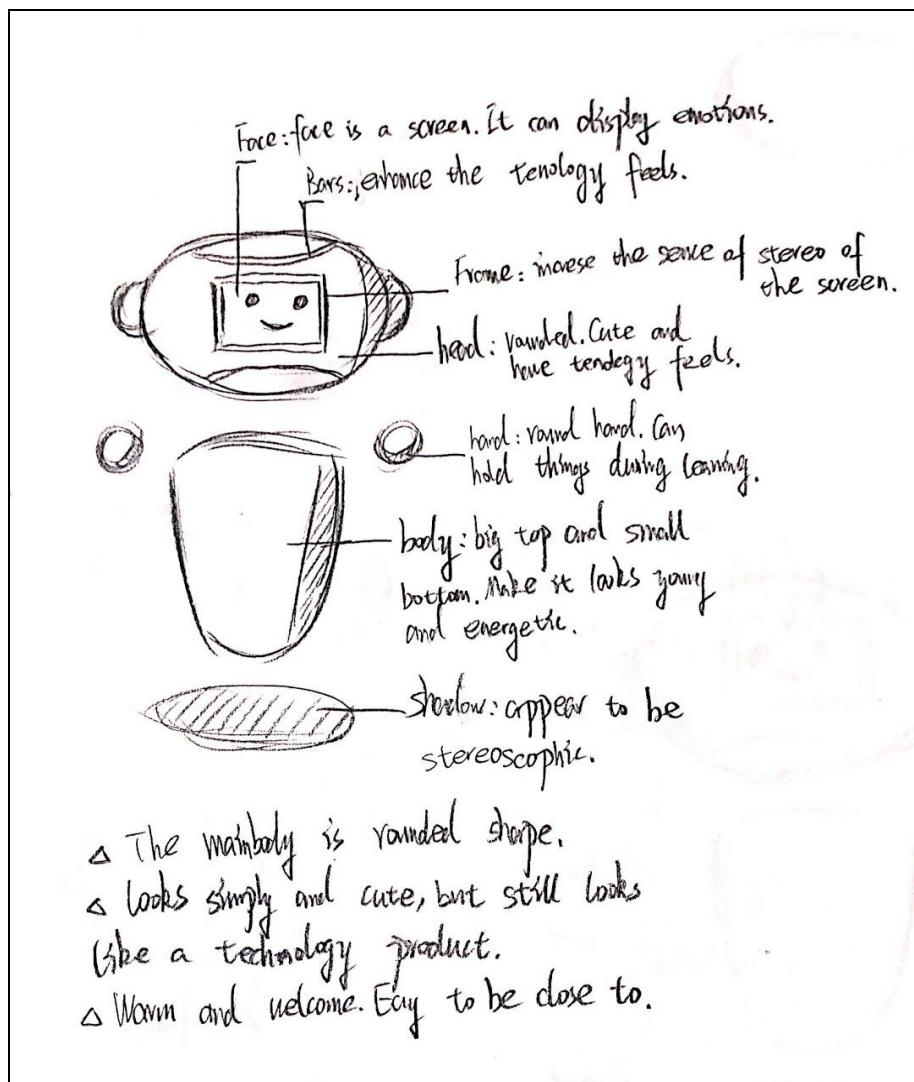 Face: face is a screen. It can display emotions.
Bars: enhance the tenology feels.
Frame: increse the sence of stereo of
the screen.
head: rounded. Cute and
have tendegy feels.
hand: round hand. Can
hold things during learning.
body: big top and small
bottom. Make it looks young
and energetic.
shadow: appear to be
stereoscophic.
△ The mainbody is rounded shape.
△ looks simply and cute, but still looks
like a technology product.
△ Warm and welcome. Easy to be close to.